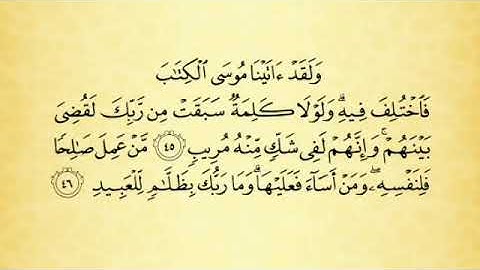 وَلَقَدْ ءَاتَيْنَا مُوسَى ٱلْكِتَٰبَ
فَٱخْتُلِفَ فِيهِ ۗ وَلَوْلَا كَلِمَةٌ سَبَقَتْ مِن رَّبِّكَ لَقُضِىَ
بَيْنَهُمْ ۚ وَإِنَّهُمْ لَفِى شَكٍّ مِّنْهُ مُرِيبٍ ٤٥ مَّنْ عَمِلَ صَٰلِحًا
فَلِنَفْسِهِۦ ۖ وَمَنْ أَسَآءَ فَعَلَيْهَا ۗ وَمَا رَبُّكَ بِظَلَّٰمٍ لِّلْعَبِيدِ ٤٦